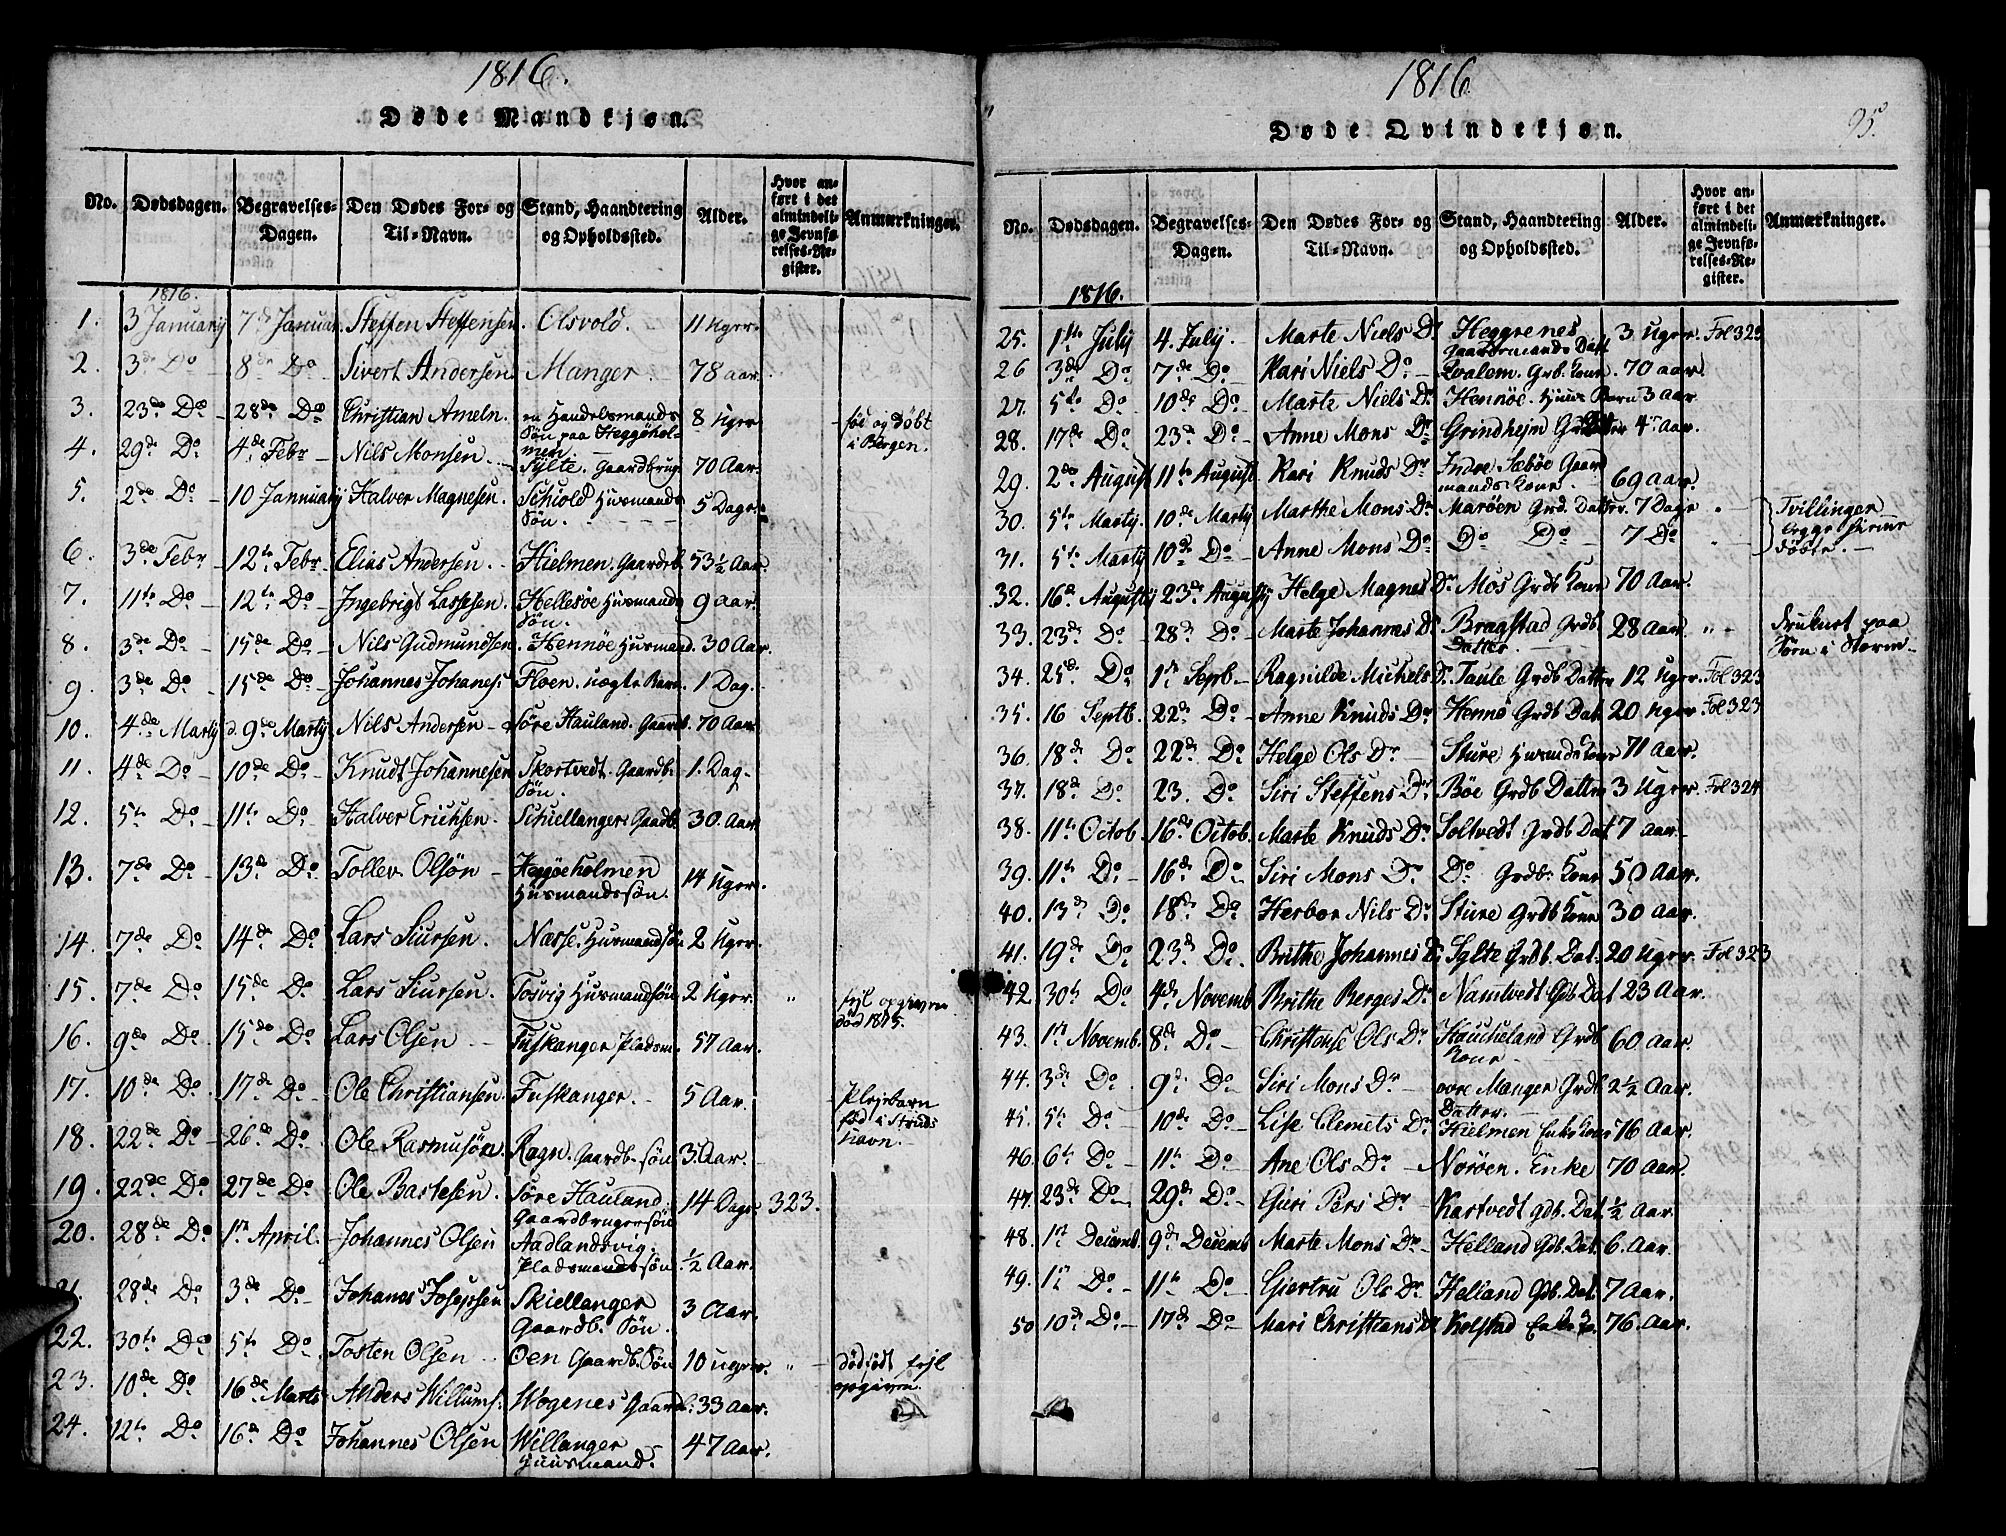 1816.
Døde Mandkjøn.
No. Dødsdagen. Begravelses-Dagen. Den Dødes For- og Til-Navn. Stand, Haandtering og Opholdssted. Alder. Hvor anført i det almindelige Jevnførelses-Register. Anmærkninger.
1816.
1. 3 January 7de Januar. Steffen Steffensen. Olsvold. 11 Uger.
2. 3de Do 8de Do Sivert Andersen Manger. 78 aar.
3. 23de Do 28de Do Christian Ameln. en Handelsmands Søn paa Heggøholmen. 8 Uger føt og døbt i Bergen.
4. 29de Do 4de Febr Nils Monsen. Sylte. Gaardbrug. 70 Aar.
5. 2de Do 10 Jannuary Halver Magnesen. Husmands Søn. 5 Dage
6. 3de Febr 12te Febr Elias Andersen. Hielmen. Gaardb. 53½ Aar.
7. 11te Do 12te Do Ingebrigt Lassesen. Hellesøe Husmands Søn. 9 aar.
8. 3de Do 15de Do Nils Gudmundsen. Hennøe Husmand. 30 Aar.
9. 3de Do 15de Do Johannes Johanes: Floen. uægte Barn. 1 Dag.
10. 4de Marty d. 9de Marty Nils Andersen Søre Hauland. Gaardb. 70 Aar.
11. 4de Do 10de Do Knudt Johannesen Skortvedt. Gaardb. Søn. 1. Dag
12. 5te Do 11te Do Halver Erichsen. Schiellanger. Gaardb. 30. Aar
13. 7de Do 13de Do Tollev Olsøn Heggøeholmen Husmandssøn. 14 Uger.
14. 7de Do 14de Do Lars Siursen. Næsse. Husmandsøn 2 Uger.
15. 7de Do 15de Do Lars Siursen. Tosvig Husmandsøn 2 Uger. " fejl opgiven død 1815.
16. 9de Do 15de Do Lars Olsen Fuskanger Pladsm. 57 Aar.
17. 10de Do 17de Do Ole Christiansen Fuskanger. 5 Aar. Plejebarn fød i Struds havn.
18. 22de Do 26de Do Ole Rasmusøn. Ragn. Gaardb. søn 3 Aar.
19. 22de Do 27de Do Ole Bastesen. Søre Hauland. Gaardbrugersøn 14 Dage 323.
20. 28de Do 1te April. Johannes Olsen Aadlandsvig. Pladsmandssøn ½ Aar.
21. 28de Do 3de Do Johanes Josepsen Skiellanger Gaardb. Søn. 3 Aar.
22. 30te Do 5te Do Tosten Olsen Oen Gaardb. Søn 10 uger. " dødføt fejl opgiven.
23. 10de Do 16de Marts Anders Willums: Wogenes Gaard. 33 Aar.
24. 12te Do 16de Do Johannes Olsen Willanger Huusmand. 47 Aar.
1816
Døde Qvindekjøn.
95.
No. Dødsdagen. Begravelses-Dagen. Den Dødes For- og Til-Navn. Stand, Haandtering og Opholdssted. Alder. Hvor anført i det almindelige Jevnførelses-Register. Anmærkninger.
1816.
25. 1te July 4. July. Marte Niels Dr Heggrenes Gaardmands Datt 3 Uger. Fol 323
26 3de Do 7de Do Kari Niels Dr Qvalem. Grb. Kone. 70 aar.
27. 5te Do 10de Do Marte Niels Dr Hennøe. Huus Barn 3 aar.
28. 17de Do 23de Do Anne Mons Dr Grindhejm 4 Aar.
29. 2de August 11te August. Kari Knuds Dr Indre Sæbøe Gaardmands Kone. 69 aar.
30. 5te Marty. 10de Marty Marthe Mons Dr Marøen Grd. Datter. 7 Dage Tvillinger begge hieme døbte.
31. 5te Marty 10de Do Anne Mons Dr Do Do 7 Do
32. 16de Augusty 23de Augusty Helge Magnes Dr Mos Grdb Kone 70 Aar.
33. 23de Do 28de Do Marte Johannes Dr Bragstad Grdb Datter. 28 Aar " druknet paa Søen i Storm
34. 25de Do 1te Septb. Ragnilde Michels Dr Taule Grdb Datter 12 Uger. Fol 323
35. 16 Septb. 22de Do Anne Knuds Dr Hennø Grdb Dat. 20 Uger Fol 323
36. 18de Do 22de Do Helge Ols Dr Sture Husmds Kone 71 Aar.
37. 18de Do 23. Do Siri Steffens Dr Bøe Grdb Datter 3 Uger. Fol 324
38. 11te Octob. 16de Octob. Marte Knuds Dr Soltvedt Grdb Dat 7 aar
39. 11te Do 16de Do Siri Mons Dr Do Grdb. Kone 50 Aar.
40. 13de Do 18de Do Herbor Nils Dr Sture Grdb Kone 30 Aar.
41. 19de Do 23de Do. Brithe Johannes Dr Sylte Grdb. Dat. 20 Uger. Fol 323
42. 30te Do 4de Novemb Brithe Berges Dr Namtvedt Gdb Dat 23 Aar.
43. 1te Novemb. 8de Do Christense Ols Dr Haucheland Grdb Kone 60 Aar.
44. 3de Do 9de Do Siri Mons Dr ovre Manger Grdb Datter. 2½ Aar.
45. 5te Do 10de Do Lise Clemets Dr Hielmen Enke 16 Aar.
46. 6te Do 11te Do Ane Ols Dr Norøen. Enke 70 Aar.
47. 23de Do 29de Do Guri Pers Dr Kartvedt gdb. Dat. ½ Aar.
48. 1te Decemb. 9de Decemb Marte Mons Dr Helland Gdb. Dat. 6. Aar.
49. 1te Do 11te Do Giertru Ols Dr Helland Gdb. Dat. 7 Aar.
50 10de Do 17de Do Mari Christians Dr Kolstad Enke 76. Aar.